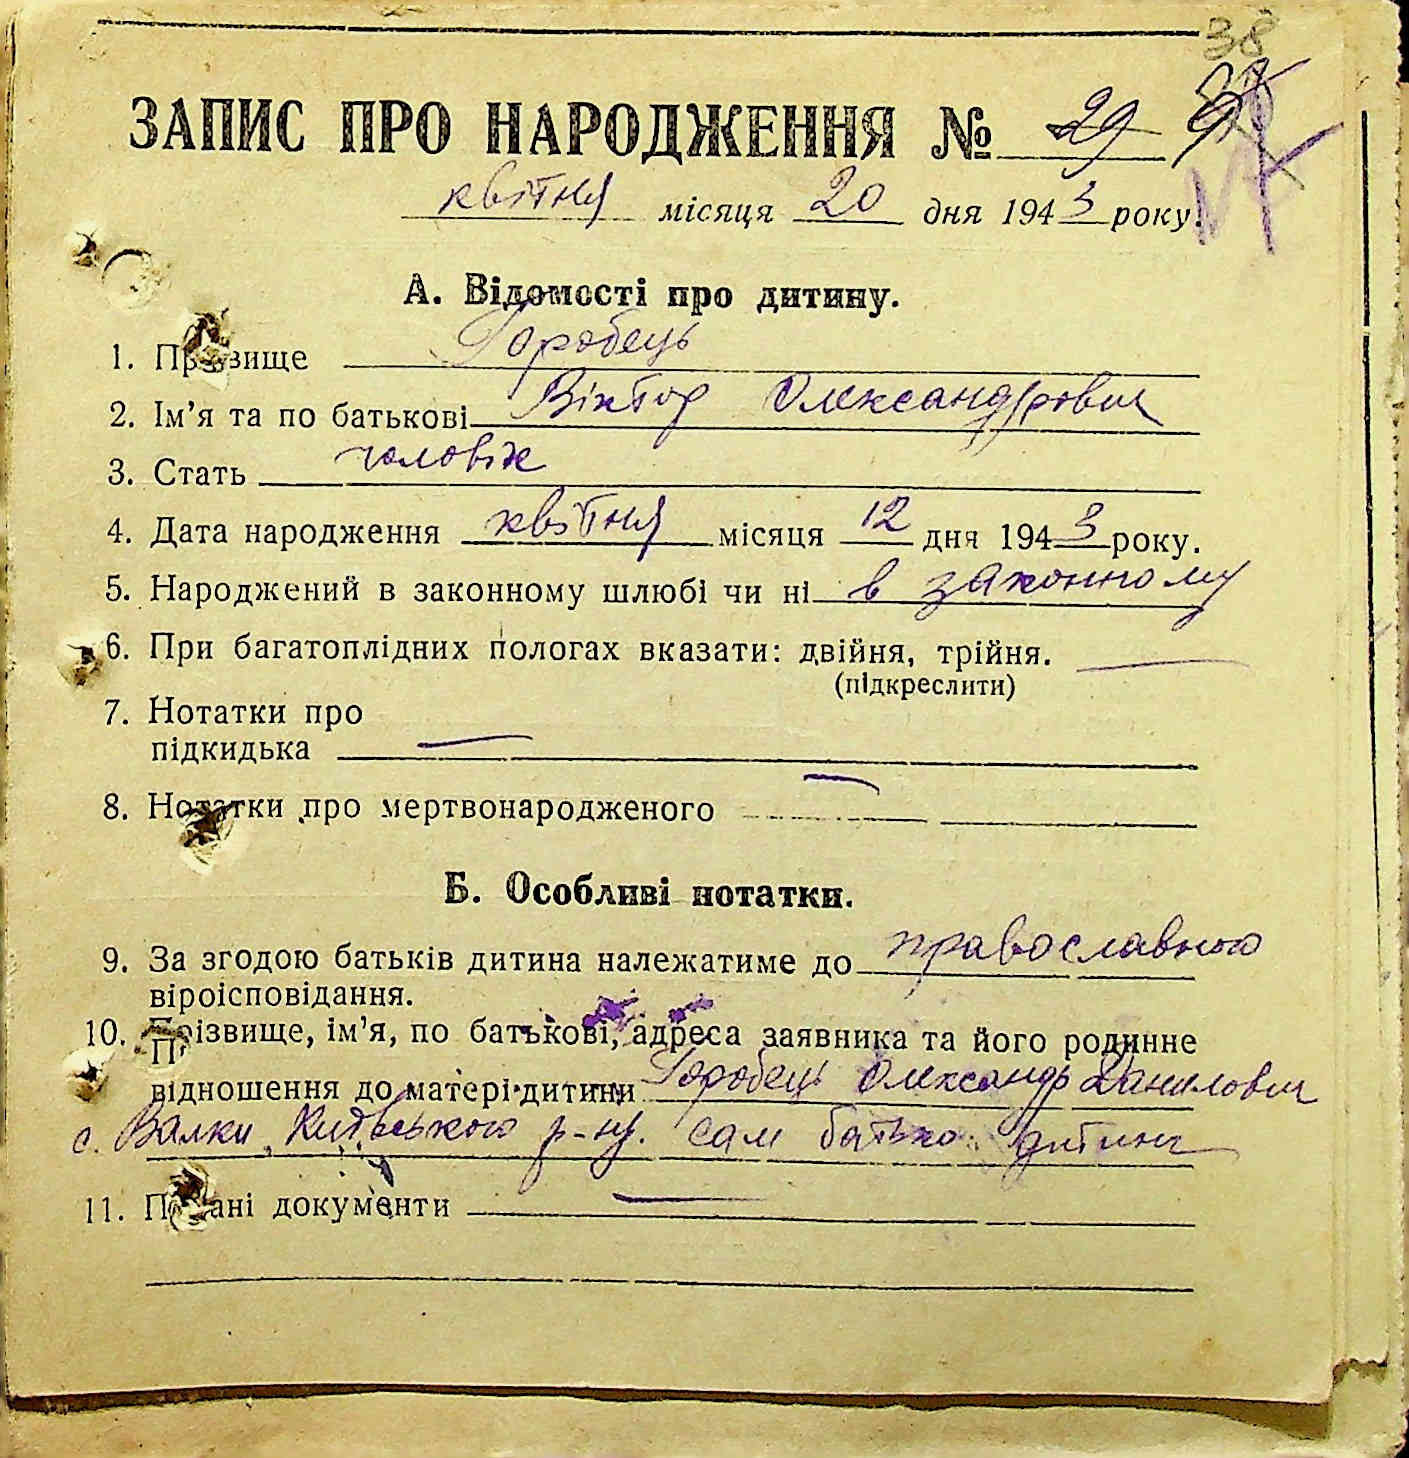 38
ЗАПИС ПРО НАРОДЖЕННЯ № 29
квітня місяця 20 дня 1943 року.
А. Відомості про дитину.
1. Прізвище Горобець
2. Ім'я та по батькові Віктор Олександрович
3. Стать чоловік
4. Дата народження квітня місяця 12 дня 1943 року.
5. Народжений в законному шлюбі чи ні в законному
6. При багатоплідних пологах вказати: двійня, трійня.
(підкреслити)
7. Нотатки про
підкидька
8. Нотатки про мертвонародженого
Б. Особливі нотатки.
9. За згодою батьків дитина належатиме до православного
віроісповідання.
10. Прізвище, ім'я, по батькові, адреса заявника та його родинне
відношення до матері дитини Горобець Олександр Данилович
с. Валки р-ну. сам батько дитини
11. Подані документи